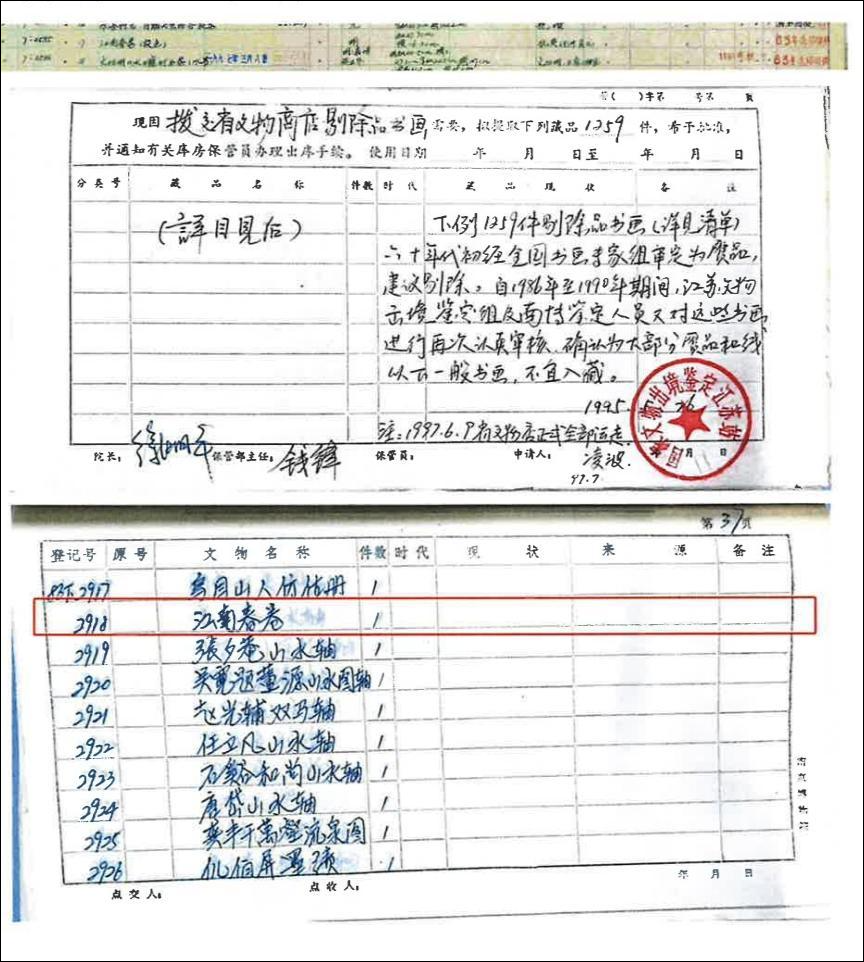 7:2595 江南春卷(设色)
63年
一九六七年三月八日
63年
第( )字第 号第 页
现因 拨交省文物商店剔除品书画 需要,拟提取下列藏品 1259 件,希予批准,
并通知有关库房保管员办理出库手续。 使用日期 年 月 日至 年 月 日
分类号 藏品名称 件数 时代 藏品现状 备注
(詳目見后)
下例1259件剔除品书画(详见清单)
六十年代初经全国书画专家组审定为赝品,
建议剔除。自1986年至1990年期间,江苏文物
出境鉴定组及南博鉴定人员又对这些书画,
进行再次认真审核,确认为大部分赝品和线
以下一般书画,不宜入藏。
1995. 26
注:1997.6.9省文物店正式全部运走.
院长: 徐湖平 保管部主任: 钱锋 保管员: 申请人: 凌波. 月 日
97.7.
国家文物出境鉴定江苏站
第 37 页
登记号 原号 文物名称 件数 时代 现状 来源 备注
2917 烏目山人仿恽册 1
2918 江南春卷 1
2919 張夕菴山水轴 1
2920 吴寬题董源山水图轴 1
2921 赵光辅双马轴 1
2922 任立凡山水轴 1
2923 石溪和尚山水轴 1
2924 唐岱山水轴 1
2925 龚半千萬壑流泉图 1
2926 1
点交人: 点收人: 年 月 日